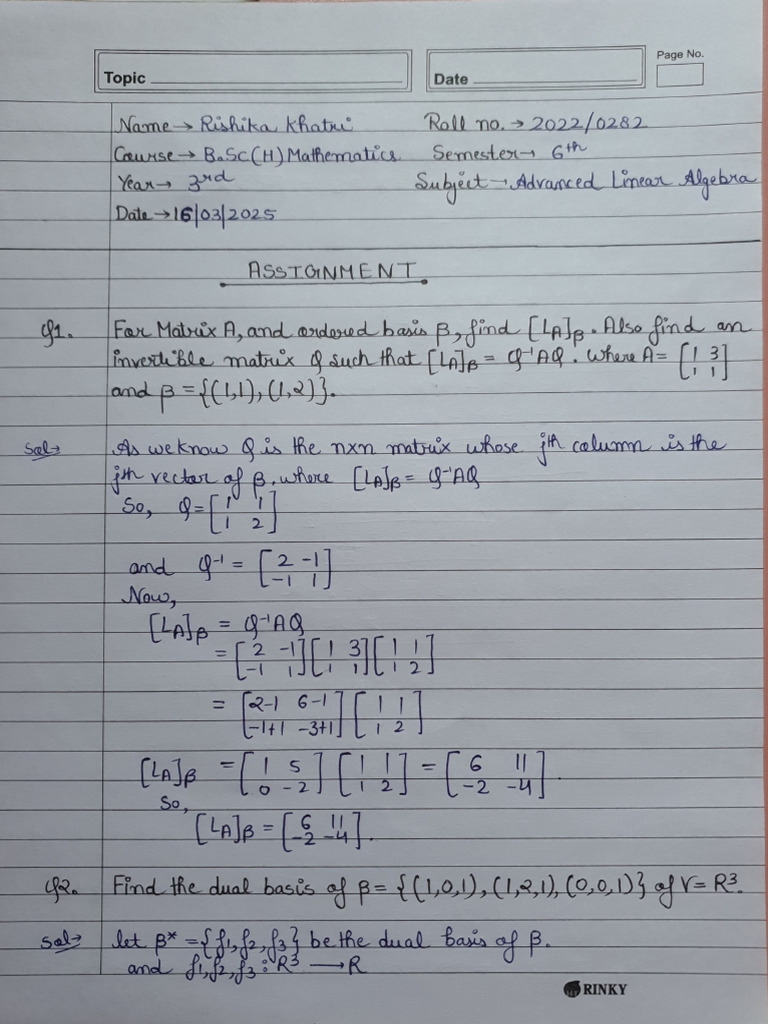 Page No.
Topic
Date
Name → Rishika Khatri Roll no. → 2022/0282
Course → B.Sc(H) Mathematics Semester → 6th
Year → 3rd Subject → Advanced Linear Algebra
Date → 16/03/2025
ASSIGNMENT
Q1. For Matrix A, and ordered basis β, find [LA]β. Also find an
invertible matrix Q such that [LA]β = Q⁻¹AQ. Where A = [1 3
1 1]
and β = {(1,1), (1,2)}.
Sol→ As we know Q is the nxn matrix whose jth column is the
jth vector of β. where [LA]β = Q⁻¹AQ
So, Q = [1 1
1 2]
and Q⁻¹ = [2 -1
-1 1]
Now,
[LA]β = Q⁻¹AQ
= [2 -1 [1 3 [1 1
-1 1] 1 1] 1 2]
= [2-1 6-1 [1 1
-1+1 -3+1] 1 2]
[LA]β = [1 5 [1 1 = [6 11
0 -2] 1 2] -2 -4].
So,
[LA]β = [6 11
-2 -4].
Q2. Find the dual basis of β = {(1,0,1), (1,2,1), (0,0,1)} of V = R³.
Sol→ let β* = {f1, f2, f3} be the dual basis of β.
and f1, f2, f3 : R³ → R
RINKY